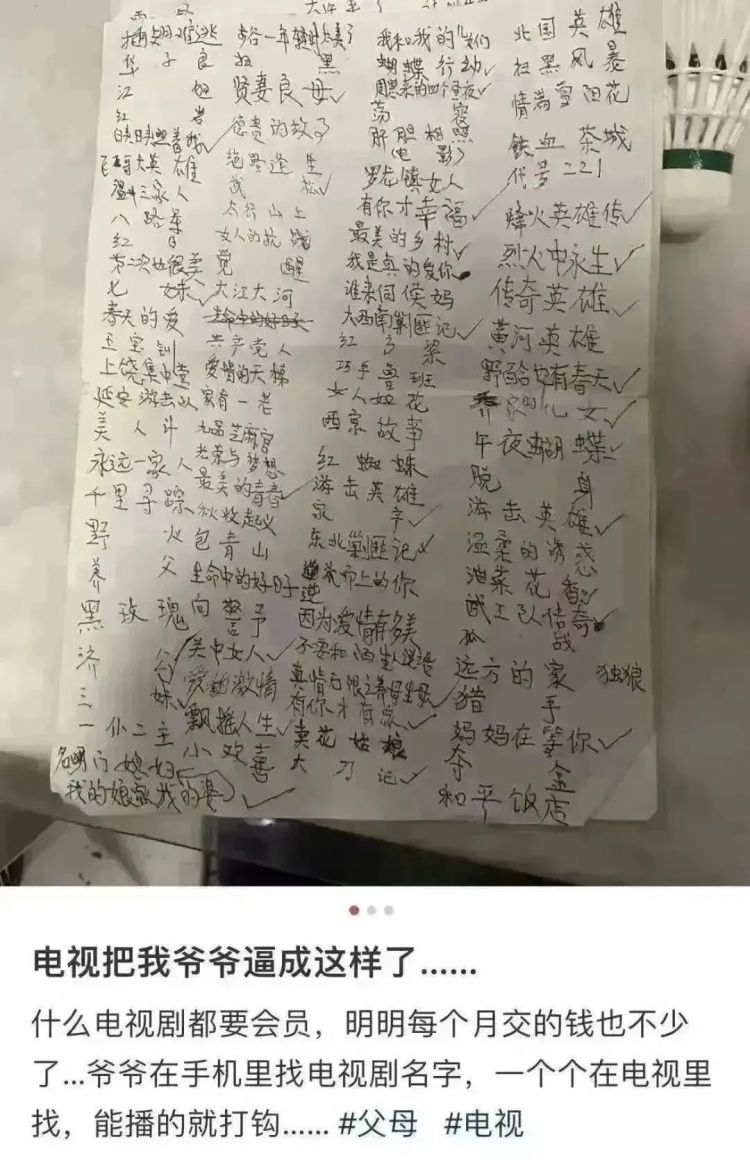 插翅难逃
华子良
江姐
红岩
日月照着我
英雄
温州一家人
八路军
红日
第二次也很美
七妹
春天的爱
王宝钏
上饶集中营
延安游击队
美人计
永远一家人
千里寻踪
野火
养父
黑玫瑰
济公
三妹
一仆二主
名门媳妇
我的娘家我的婆
扫黑
贤妻良母
德贵的故事
绝路逢生
武松
太行山上
女人的抗战
觉醒
大江大河
共产党人
爱情的天梯
家有一老
九品芝麻官
光荣与梦想
最美的青春
秋收起义
包青山
生命中的好日子
向警予
关中女人
爱的激情
飘摇人生
小欢喜
我和我的儿女们
蝴蝶行动
周恩来的四个昼夜
荡寇
肝胆相照
(电影)
罗龙镇女人
有你才幸福
最美的乡村
我是真的爱你
谁来伺候妈
大西南剿匪记
红高粱
巧手鲁班
女人如花
西京故事
红蜘蛛
游击英雄
东北剿匪记
逆流而上的你
因为爱情有多美
不要和陌生人说话
真情无限之养母生母
有你才有家
卖花姑娘
大刀记
北国英雄
扫黑风暴
情满雪阳花
铁血茶城
代号221
烽火英雄传
烈火中永生
传奇英雄
黄河英雄
野百合也有春天
养家的儿女
午夜蝴蝶
脱身
游击英雄
温柔的诱惑
油菜花香
武工队传奇
孤战
远方的家 独狼
猎手
妈妈在等你
夺金
和平饭店
电视把我爷爷逼成这样了......
什么电视剧都要会员，明明每个月交的钱也不少
了...爷爷在手机里找电视剧名字，一个个在电视里
找，能播的就打钩...... #父母 #电视